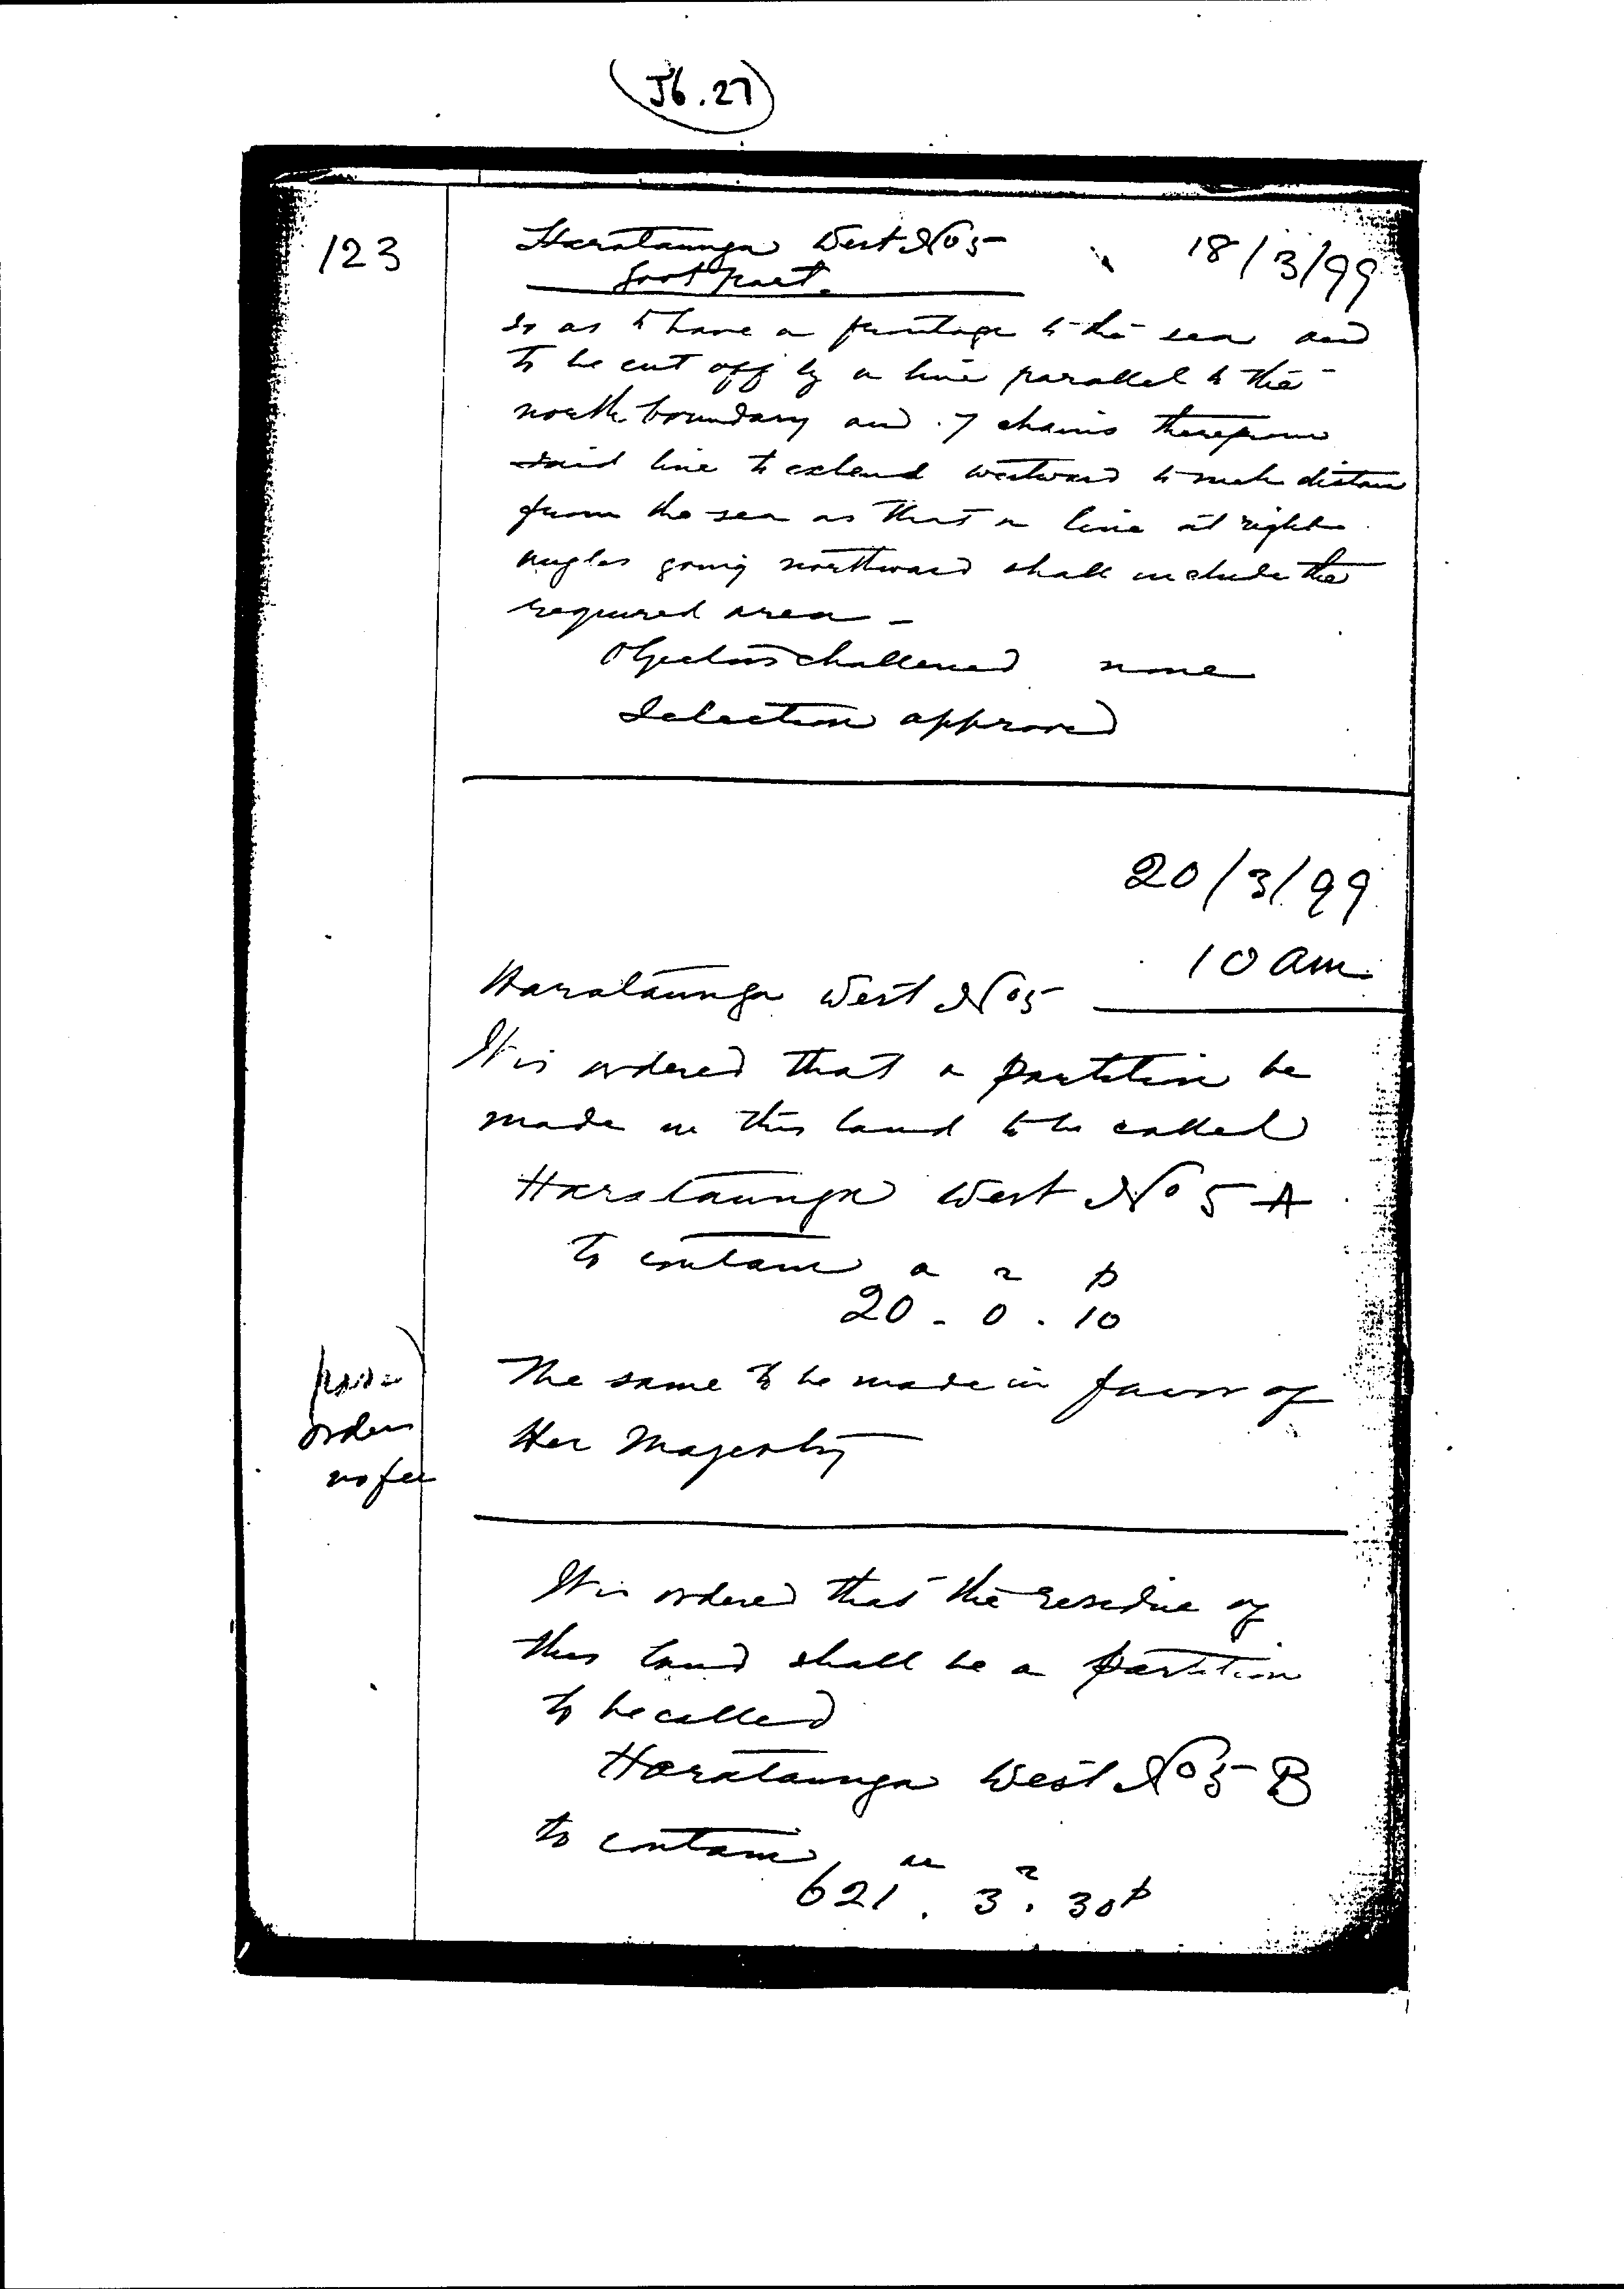 J6.27
123
Harataunga West No 5
Govt part.
18/3/99
so as to have a frontage to the sea and
to be cut off by a line parallel to the
north boundary and 7 chains therefrom
said line to extend westward to such distance
from the sea as that a line at right
angles going northward shall include the
required area -
Objectors challenged none
Selection approved
20/3/99
10 am
Harataunga West No 5
It is ordered that a partition be
made in this land to be called
Harataunga West No 5 A
to contain a r p
20 - 0 . 10
The same to be made in favor of
Her Majesty
orders
no fee
It is ordered that the residue of
this land shall be a partition
to be called
Harataunga West No 5 B
to contain
a r
621 . 3 . 30 p